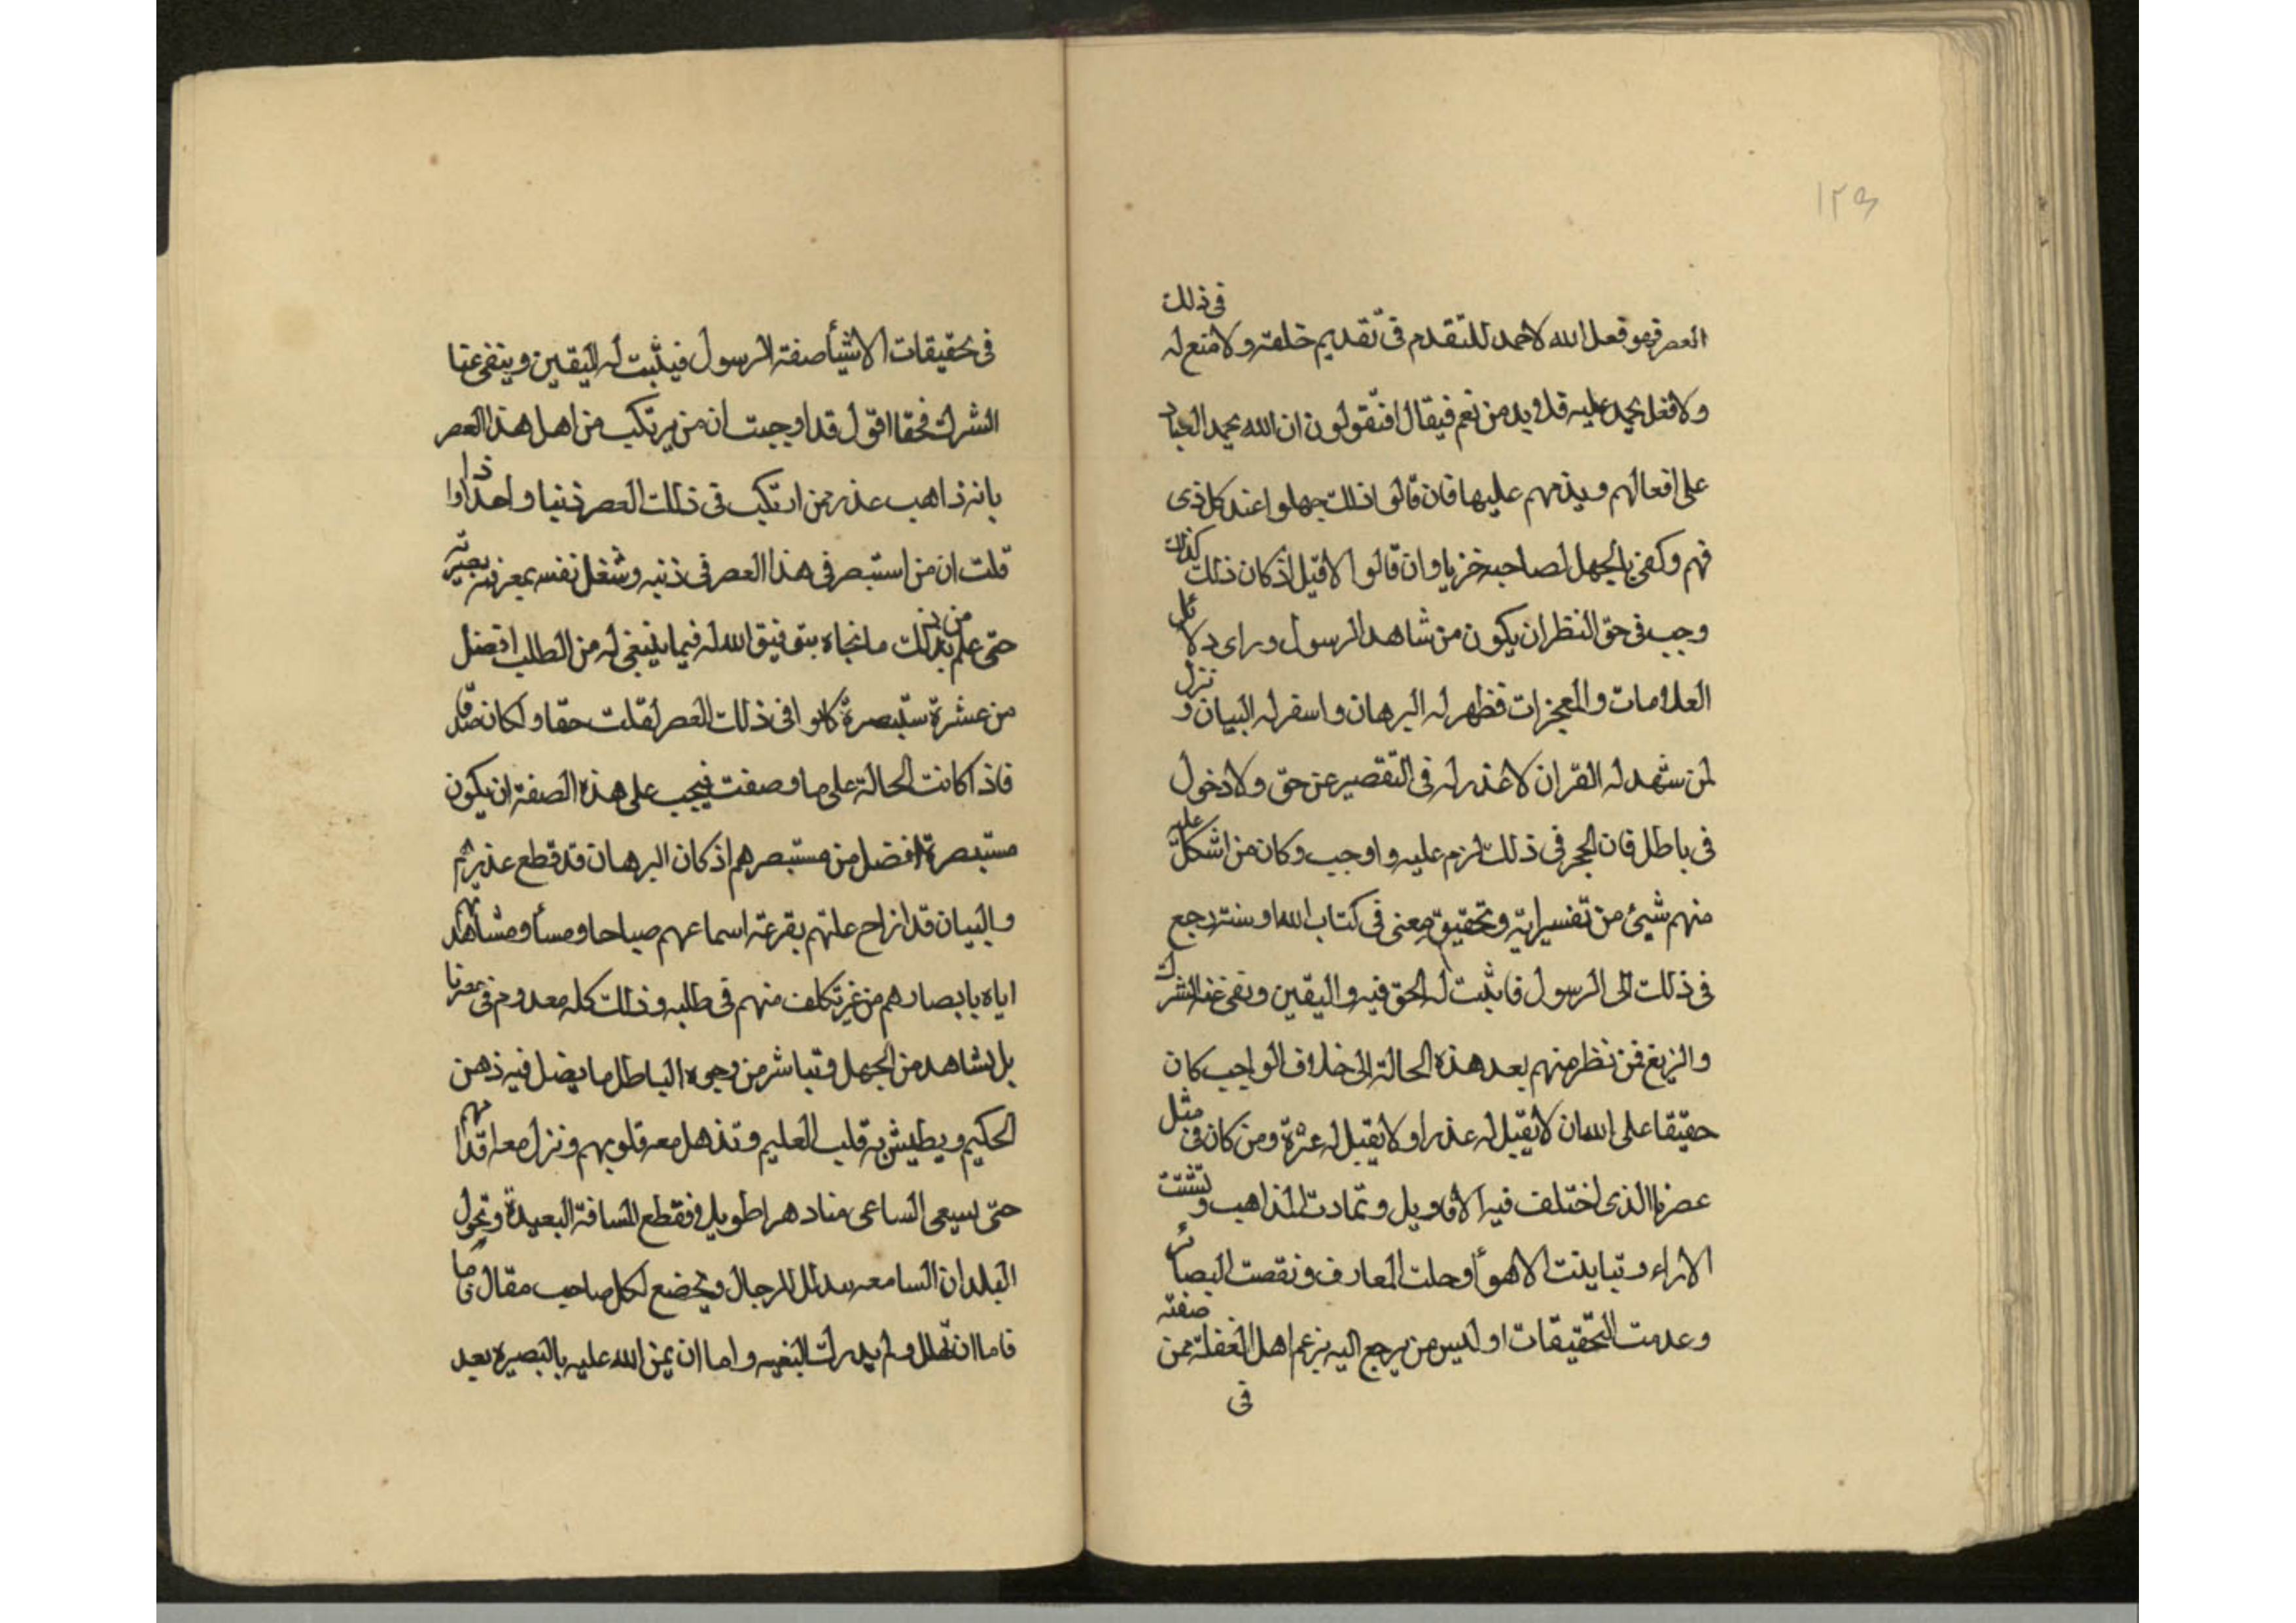 ١٢٩
في ذلك
العصر فهو فعل الله لا حمد للتقدم في تقديم خلقته ولا منع له
ولا فعل يحمد عليه قل ويد من نعم فيقال افتقولون ان الله يحمد العباد
على افعالهم ويذمهم عليها فان قالوا ذلك جهلوا عند كل ذى
فهم وكفى بالجهل لصاحبه خزيا وان قالوا لا قيل اذ كان ذلك كذلك
وجب فى حق النظر ان يكون من شاهد الرسول وراى دلائل
العلامات والمعجزات فظهر له البرهان واسفر له البيان و نزل
لمن شهد له القران لا عذر له فى التقصير عن حق ولا دخول
فى باطل فان الحجر فى ذلك لزم عليه واوجب وكان من اشكل عليه
منهم شيئ من تفسير اية وتحقيق معنى فى كتاب الله او سنته رجع
فى ذلك الى الرسول فاثبت له الحق فيه واليقين ونفى عنه الشرك
والزيغ فمن نظر منهم بعد هذه الحالة الى خلاف الواجب كان
حقيقا على الله ان لا يقبل له عذرا ولا يقبل له عثرة ومن كان فى مثل
عصرنا الذى اختلف فيه الاقاويل وتمادت المذاهب و تشتت
الاراء وتباينت الاهوأ وحلت المعارف ونقصت البصائر
وعدمت التحقيقات اوليس من يرجع اليه بزعم اهل الغفلة ممن صفته
فى
فى تحقيقات الاشيأ صفة الرسول فيثبت له اليقين وينفى عنا
الشرك فحقا اقول قد اوجبت ان من يرتكب من اهل هذا العصر
بانه ذاهب عذر ممن ارتكب فى ذلك العصر ذنبا واحدا واذا
قلت ان من استبصر فى هذا العصر فى ذنبه وشغل نفسه بمعرفة بصيرته
حتى علم بذلك من ما نجاه بتوفيق الله له فيما ينبغى له من الطلب افضل
من عشرة ستبصرة كانوا فى ذلك العصر لقلت حقا ولكان صدقا
فاذا كانت الحالة على ما وصفت فيجب على هذه الصفة ان يكون
مستبصرة افضل من مستبصرهم اذ كان البرهان قد قطع عذرهم
والبيان قد ازاح علتهم بقرعة اسماعهم صباحا ومسأ ومشاهدتهم
اياه بابصارهم من غير تكلف منهم فى طلبه وذلك كله معدوم فى عصرنا
بل نشاهد من الجهل وتباشر من وجوه الباطل ما يضل فيه ذهن
الحكيم ويطيش به قلب العليم وتذهل معه قلوبهم ونزل معه اقدامهم
حتى يسعى الساعى منا دهرا طويلا فقطع المسافة البعيدة وتجول
البلدان السامعه للرجال ويخضع لكل صاحب مقال
فاما ان ولم يدرك البغيه واما ان يمن الله عليه بالبصيره بعد